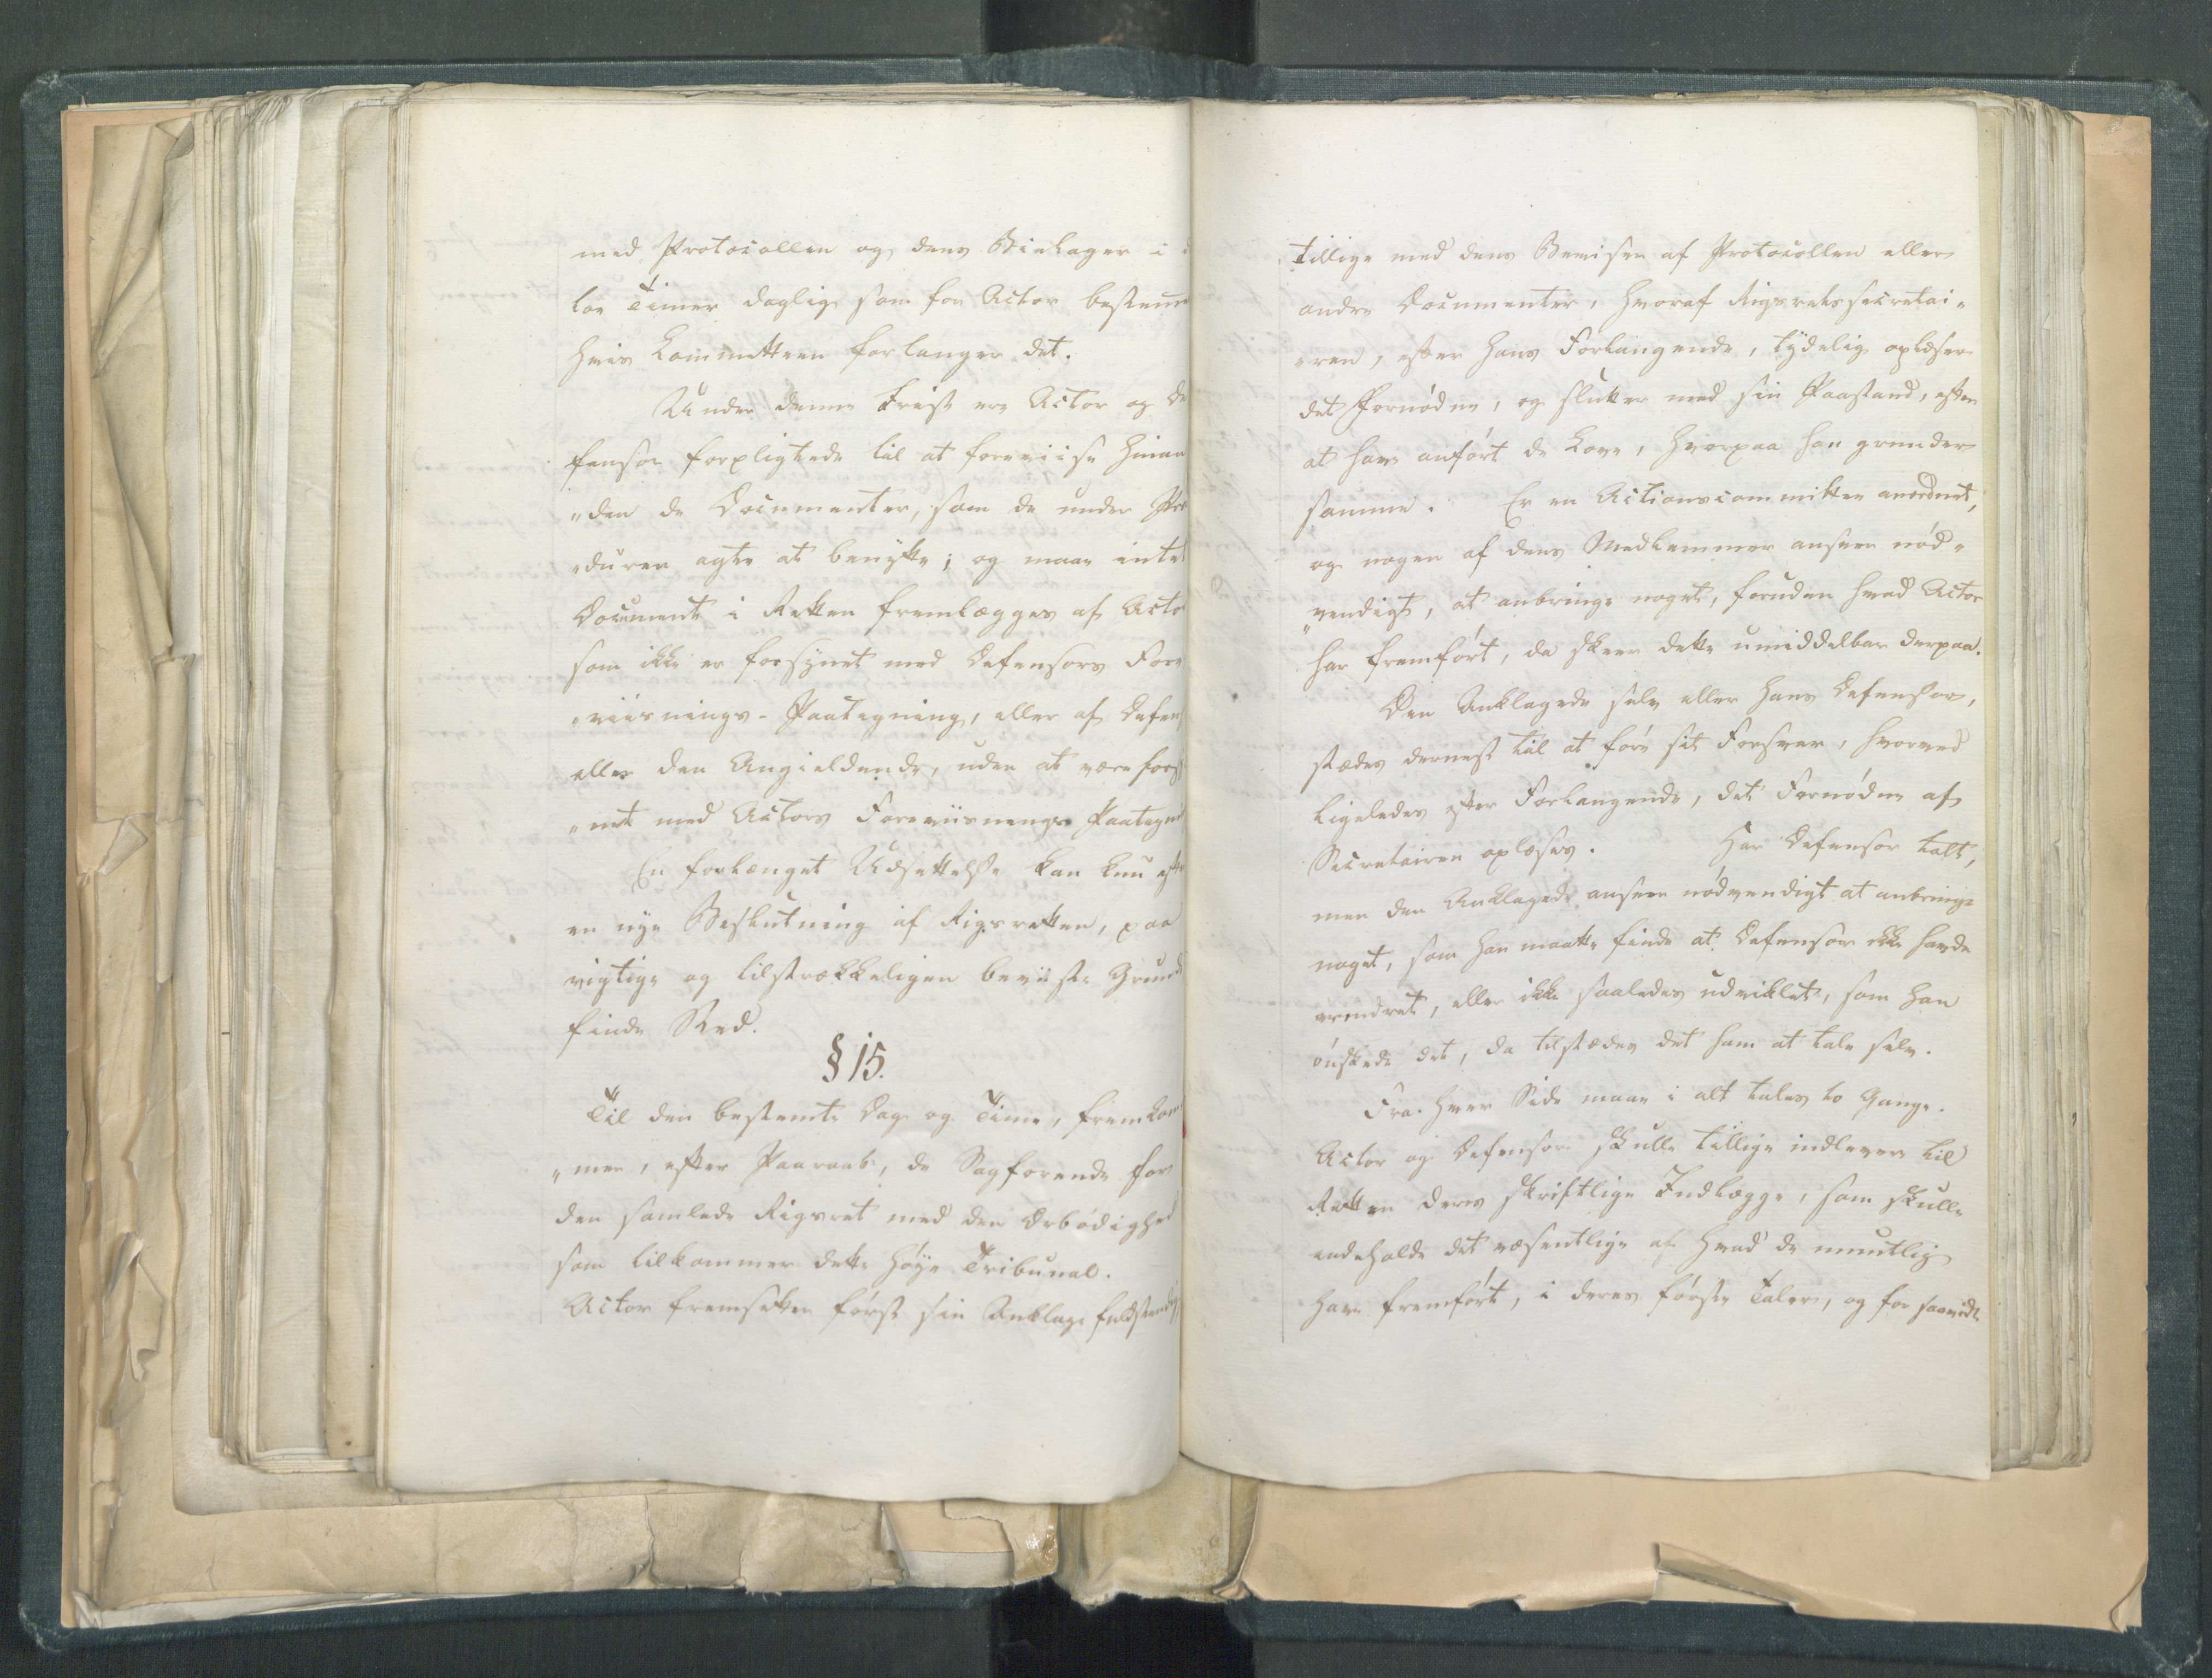 med Protocollen og dens Bielager i
tov Timer daglig som for Actor bestemt
hvis Committeen forlanger det.
Under denne Frist ere Actor og De
fensor forpligtede til at foreviise hinan
„den de Documenter, som de under Pro
„duren agte at benytte; og maae intet
Document i Retten fremlægges af Actor
som ikke er forsynet med Defensors Fore
„viisnings-Paategning, eller af Defen
eller den Angieldende, uden at være forsy
„net med Actors Foreviisnings Paategni
En forlænget Udsættelse kan kun efter
en nye Beslutning af Rigsretten, paa
vigtige og tilstrækkeligen beviiste Grunde
finde Sted.
§ 15.
Til den bestemte Dag og Time, fremkom
„mer, efter Paaraab, de Sagførende for
den samlede Rigsret med den Ærbødighed
som tilkommer dette høye Tribunal.
Actor fremsetter først sin Anklage fuldstændig,
tillige med dens Beviser af Protocollen eller
andre Documenter, hvoraf Rigsretssecretai„
„ren, efter hans Forlangende, tydelig oplæser
det Fornødne, og slutter med sin Paastand, efter
at have anført de Love, hvorpaa han grunder
samme. Er en Actionscommittee anordnet,
og nogen af dens Medlemmer ansеer nød„
„vendigt, at anbringe noget, foruden hvad Actor
har fremført, da skeer dette umiddelbar derpaa.
Den Anklagede selv eller hans Defensor,
stædes dernest til at føre sit Forsvar, hvorved
ligeledes efter Forlangende, det Fornødne af
Secretairen oplæses. Har Defensor talt,
men den Anklagede anseer nødvendigt at anbringe
noget, som han maatte finde at Defensor ikke havde
erindret, eller ikke saaledes udviklet, som han
ønskede det, da tilstædes det ham at tale selv.
Fra hver Side maae i alt tales to Gange.
Actor og Defensor skulle tillige indlevere til
Retten deres skriftlige Indlægge, som skulle
indeholde det væsentlige af hvad de mundtlig
have fremført, i deres første Taler, og for saavidt